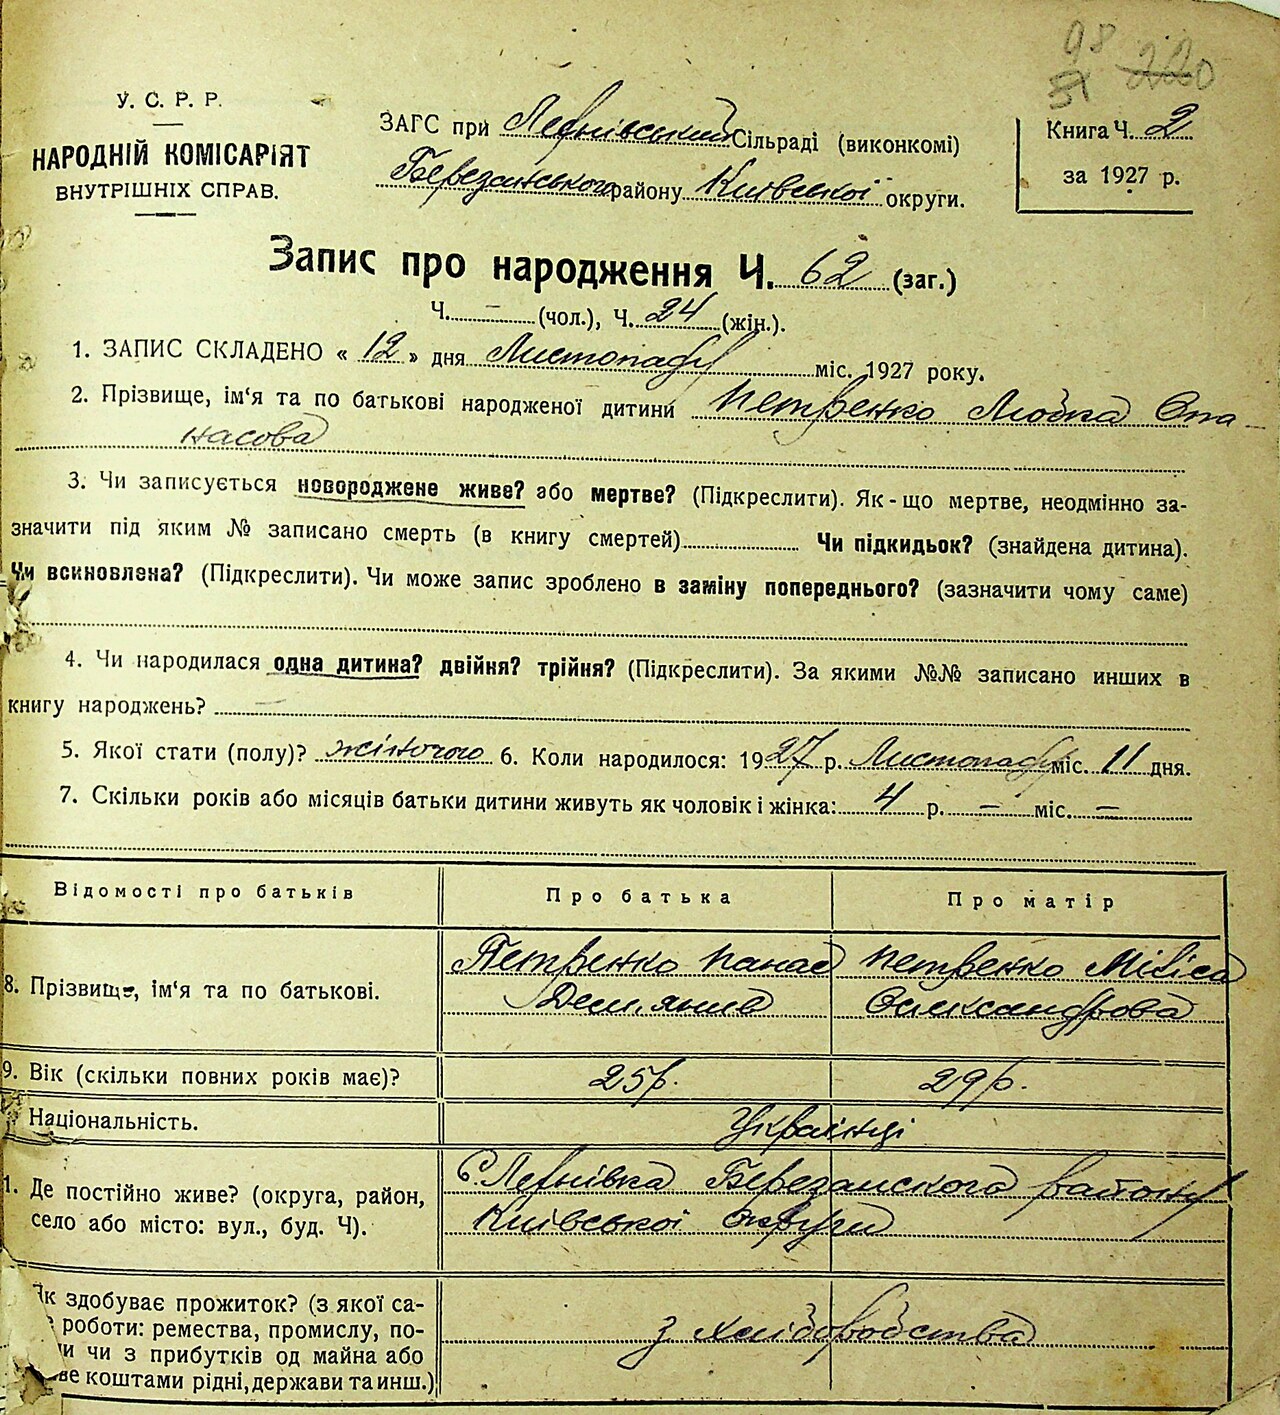 98
51 220
У. С. Р. Р.
НАРОДНІЙ КОМІСАРІЯТ
ВНУТРІШНІХ СПРАВ.
ЗАГС при Лехнівський Сільраді (виконкомі)
Березанського району Київської округи.
Книга Ч. 2
за 1927 р.
Запис про народження Ч. 62 (заг.)
Ч. — (чол.), Ч. 24 (жін.).
1. ЗАПИС СКЛАДЕНО « 12 » дня Листопаду міс. 1927 року.
2. Прізвище, ім‘я та по батькові народженої дитини Петренко Любка Опа-
насова
3. Чи записується новороджене живе? або мертве? (Підкреслити). Як-що мертве, неодмінно за-
значити під яким № записано смерть (в книгу смертей) Чи підкидьок? (знайдена дитина).
Чи всиновлена? (Підкреслити). Чи може запис зроблено в заміну попереднього? (зазначити чому саме)
4. Чи народилася одна дитина? двійня? трійня? (Підкреслити). За якими №№ записано инших в
книгу народжень? —
5. Якої стати (полу)? жіночого 6. Коли народилося: 1927 р. Листопаду міс. 11 дня.
7. Скільки років або місяців батьки дитини живуть як чоловік і жінка: 4 р. — міс. —
Відомості про батьків Про батька Про матір
8. Прізвище, ім‘я та по батькові. Петренко Панас Петренко
Дем'янів Олександрова
9. Вік (скільки повних років має)? 25 р. 29 р.
Національність. Українці
1. Де постійно живе? (округа, район, С. Лехнівка Березанського району
село або місто: вул., буд. Ч). Київської округи
Як здобуває прожиток? (з якої са-
роботи: ремества, промислу, по- з хліборобства
чи з прибутків од майна або
коштами рідні, держави та инш.)